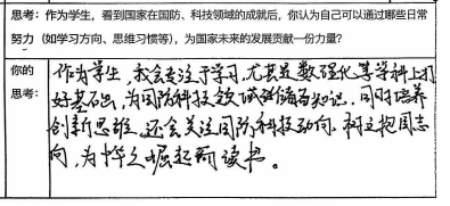 思考：作为学生，看到国家在国防、科技领域的成就后，你认为自己可以通过哪些日常
努力（如学习方向、思维习惯等），为国家未来的发展贡献一份力量？
你的
思考：
作为学生，我会专注于学习，尤其是数理化等学科上打
好基础，为国防科技领域储备知识，同时培养
创新思维，还会关注国防科技动向，树立报国志
向，为中华之崛起而读书。